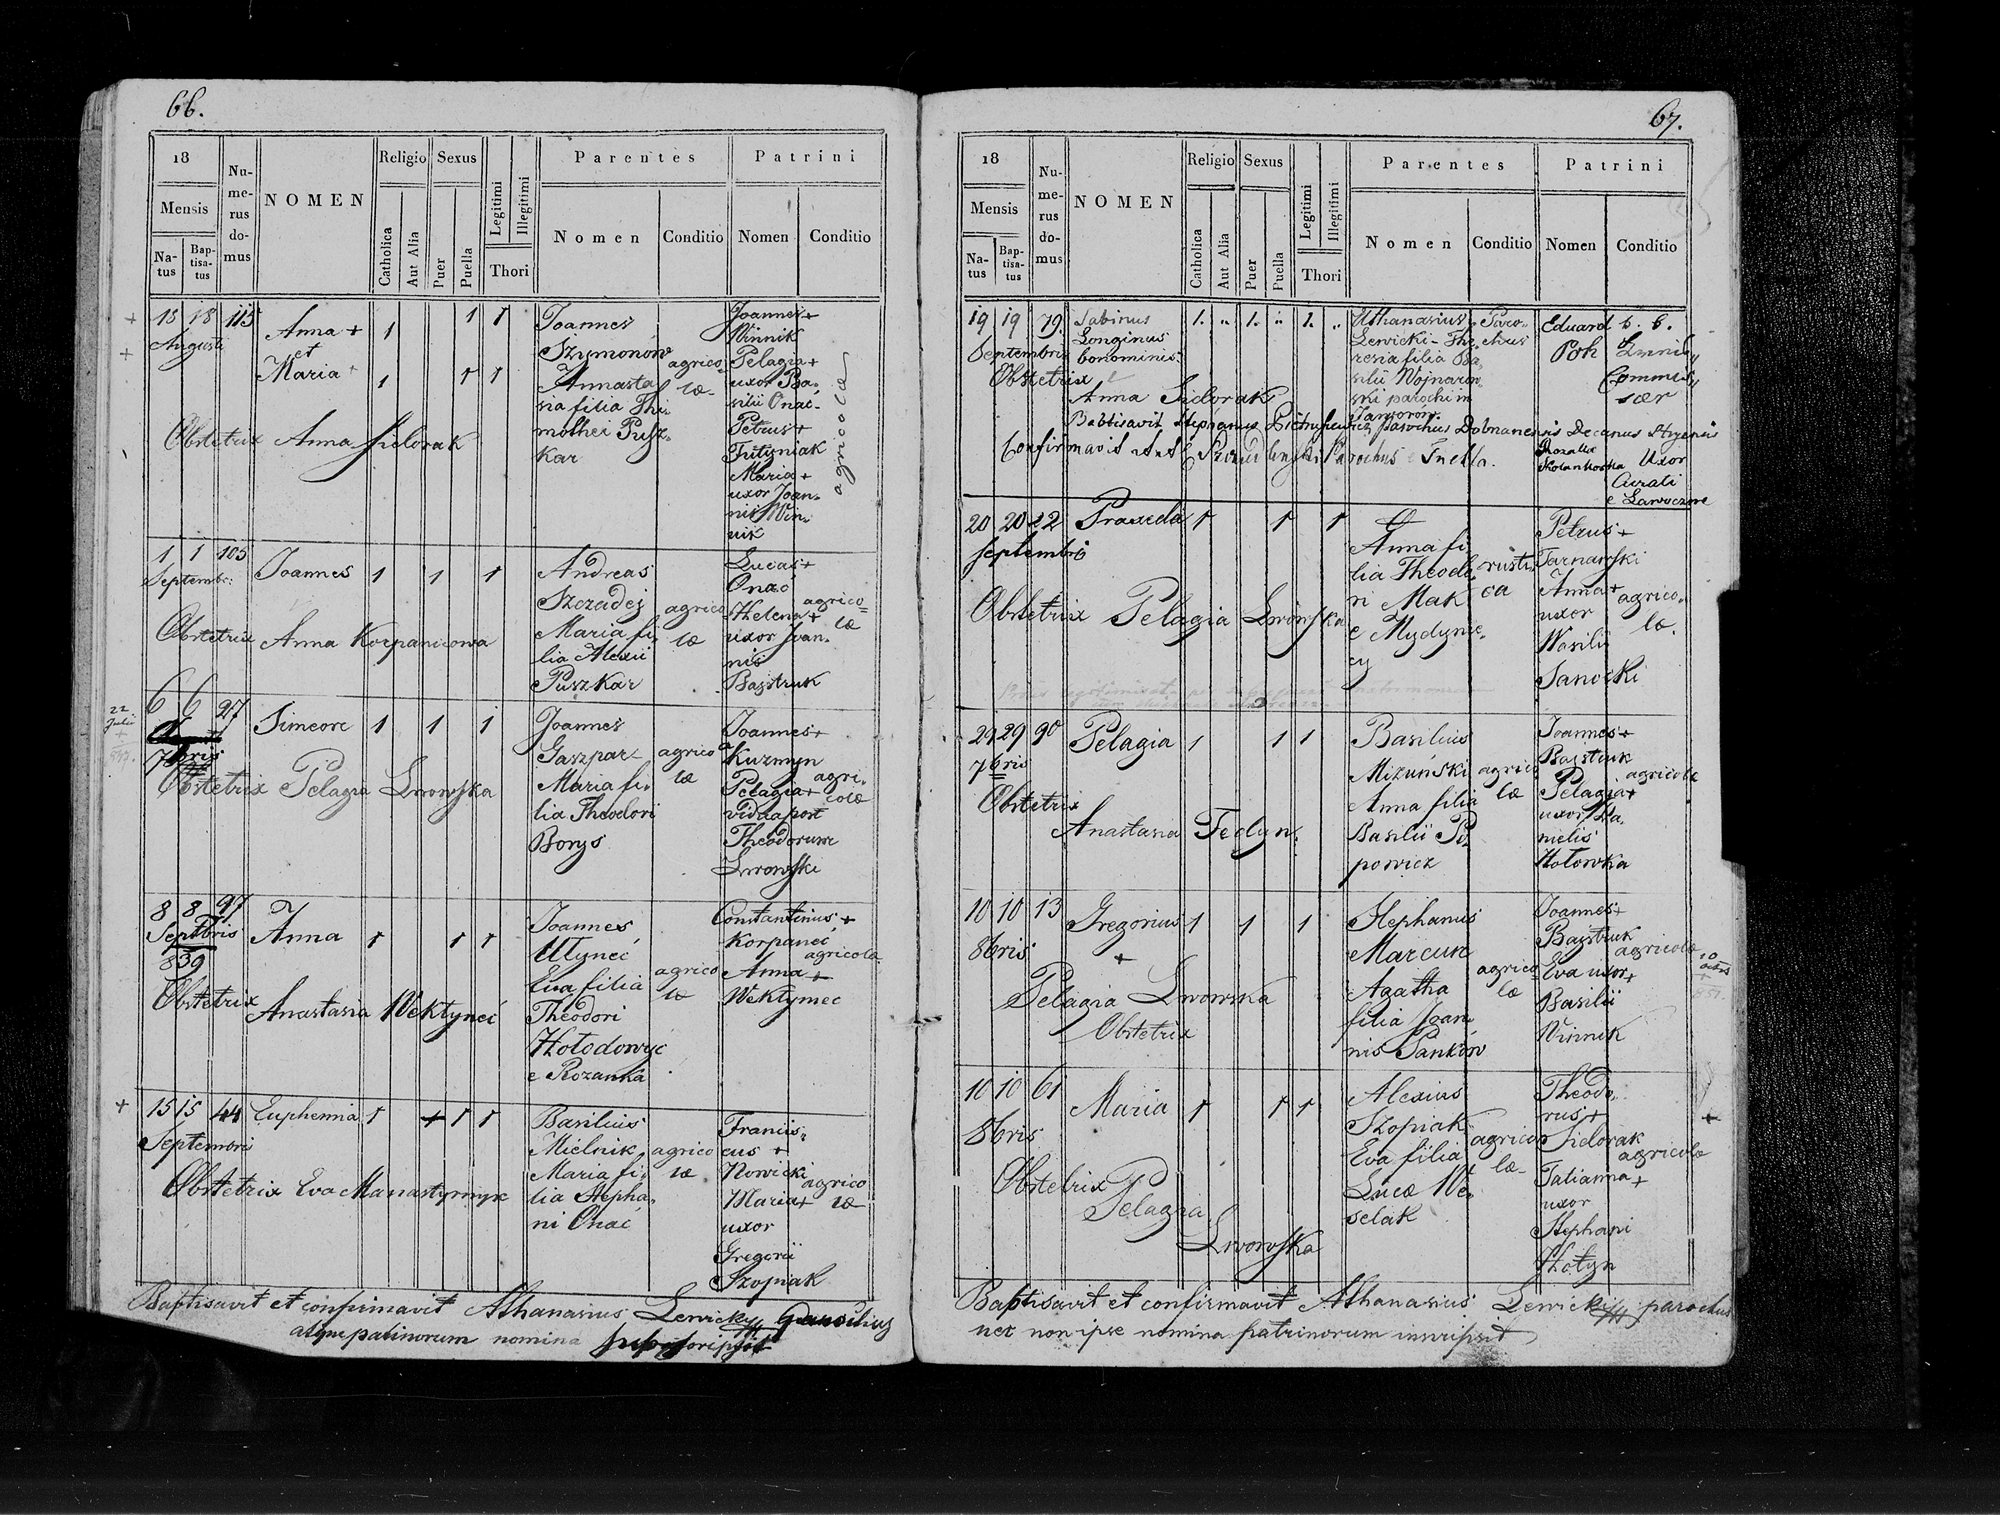 66.
18
Mensis
Natus
Baptisatus
Numerus domus
NOMEN
Religio
Catholica
Aut Alia
Sexus
Puer
Puella
Legitimi
Illegitimi
Thori
Parentes
Nomen
Conditio
Patrini
Nomen
Conditio
15 18 115
Augusti
Anna +
et
Maria +
1 1 1
1 1 1
Joannes
Szymonów
Annasta-
sia filia Thi-
mothei Pusz-
kar
agrico-
læ
Joannes +
Winnik
Pelagia +
uxor Ba-
silii Onac-
Petrus +
Fityniak
Maria +
uxor Joan-
nis Win-
nik
agricolæ
Obstetrix Anna Sidorak
1 1 105
Septembr:
Joannes 1 1 1
Andreas
Szczadej
Maria fi-
lia Alexii
Puszkar
agrico
læ
Lucas +
Onac
Helena +
uxor Joan-
nis
Bajstruk
agrico-
læ
Obstetrix Anna Korpaniowa
22
Julii
+
6 6 97
7bris
Simeon 1 1 1
Joannes
Gaszpar-
Maria fi-
lia Theodori
Borys
agrico
læ
Joannes +
Kuzmyn
Pelagia +
vidua post
Theodorum
Lwowski
agri-
colæ
Obstetrix Pelagia Lwowska
8 8 97
Septbris
839
Anna 1 1 1
Joannes
Ulynec
Eva filia
Theodori
Hołodowyc
e Rozanka
agrico
læ
Constantinus +
Korpaneć
Anna +
Wekłymec
agricola
Obstetrix Anastasia Wekłyneć
+
15 15 44
Septembris
Euphemia 1 1 1
Basilius
Mielnik
Maria fi-
lia Stepha-
ni Onac
agrico
læ
Francis-
cus +
Nowicki
Maria +
uxor
Gregorii
Szopiak
agrico
læ
Obstetrix Eva Manastyrnyk
Baptisavit et confirmavit Athanasius Lewicky
atque patinorum nomina
67.
18
Mensis
Natus
Baptisatus
Numerus domus
NOMEN
Religio
Catholica
Aut Alia
Sexus
Puer
Puella
Legitimi
Illegitimi
Thori
Parentes
Nomen
Conditio
Patrini
Nomen
Conditio
19 19 79.
Septembris
Sabinus
Longinus
bonominis
1. " 1. " 1. "
Athanasius
Lewicki - The-
resia filia Ba-
silii Wojnarow-
ski parochi in
Jaworów.
Paro-
chus
Eduard
Poh
Obstetrix
Anna Sidorak
Babtisavit Stephanus Pietrusiewicz parochus Dolnanensis Decanus Stryensis
Confirmavit Parochus Tuchla.
Rozalia
Uxor
Curati
e Lawoczne
20 20 22
Septembris
Praxeda 1 1 1
Anna fi-
lia Theodo-
ri Mak
e Mydynie-
cy
rusti-
ca
Petrus +
Tarnawski
Anna +
uxor
Wasilii
Sanocki
agrico-
læ.
Obstetrix Pelagia Lwowska
29 29 90
7bris
Pelagia 1 1 1
Basilius
Mizuński
Anna filia
Basilii Po-
powicz
agrico
læ
Joannes +
Bajstruk
Pelagia +
uxor Da-
nielis
Hołowka
agricolæ
Obstetrix
Anastasia Fedyn.
10 10 13
8bris
Gregorius 1 1 1
+
Stephanus
Marcun
Agatha
filia Joan-
nis Pankow
agrico-
læ
Joannes +
Bajstruk
Eva uxor +
Basilii
Winnik
agricolæ
Pelagia Lwowska
Obstetrix
10 10 61
8bris
Maria 1 1 1
Alexius
Szopiak
Eva filia
Lucæ We-
selak
agrico
læ-
Theodo-
rus +
Sidorak
Tatianna +
uxor
Stephani
Hotyn
agricolæ
+
Obstetrix
Pelagia
Lwowska
Baptisavit et confirmavit Athanasius Lewicki parochus
nec non ipse nomina patrinorum inscripsit